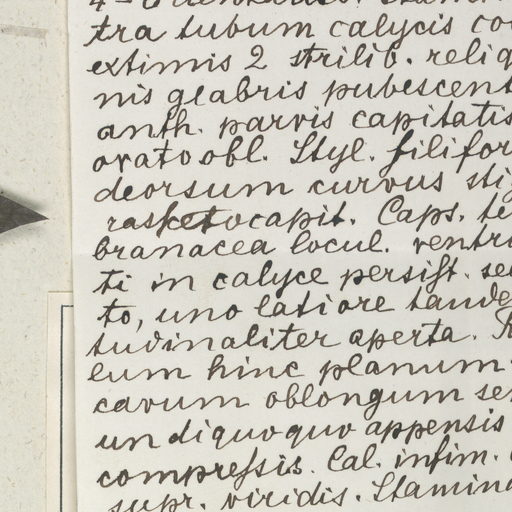 tra tubum calycis co
extimis 2 strilib. reliq
nis glabris pubescent
anth. parvis capitatis
ovato obl. Styl. filifor
deorsum curvus sti
capit. Caps. te
branacea locul. ventr
ti in calyce persist. se
to, uno latiore tande
tudinaliter aperta.
eum hinc planum
cavum oblongum se
undiquoquo appensis
compressis. Cal. infim.
supr. viridis. Stamin